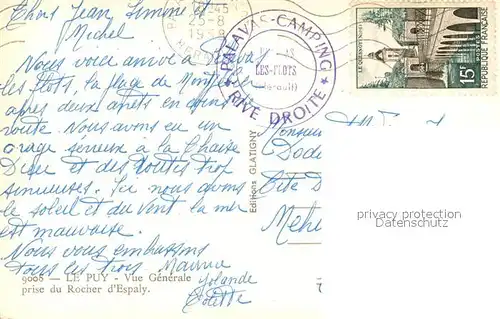 Chers Jean Simone et
Michel
Nous voici arrivé à Palavas
les flots, la plage de Montpellier
après deux arrêts en cours
route. Nous avons eu un
orage serieux à la Chaise
Dieu et des routes trop
sinueuses. Ici nous avons
le soleil et du vent la mer
est mauvaise.
Nous vous embrassons
tous les trois Maurice
Yolande
Colette
9006 — LE PUY - Vue Générale
prise du Rocher d'Espaly.
Editions GLATIGNY
PALAVAS-CAMPING
LES-FLOTS
(Hérault)
RIVE DROITE
28-8
LE QUESNOY (NORD)
15F
REPUBLIQUE FRANÇAISE
Monsieur
Dode
Cité D
Mehu
privacy protection
Datenschutz